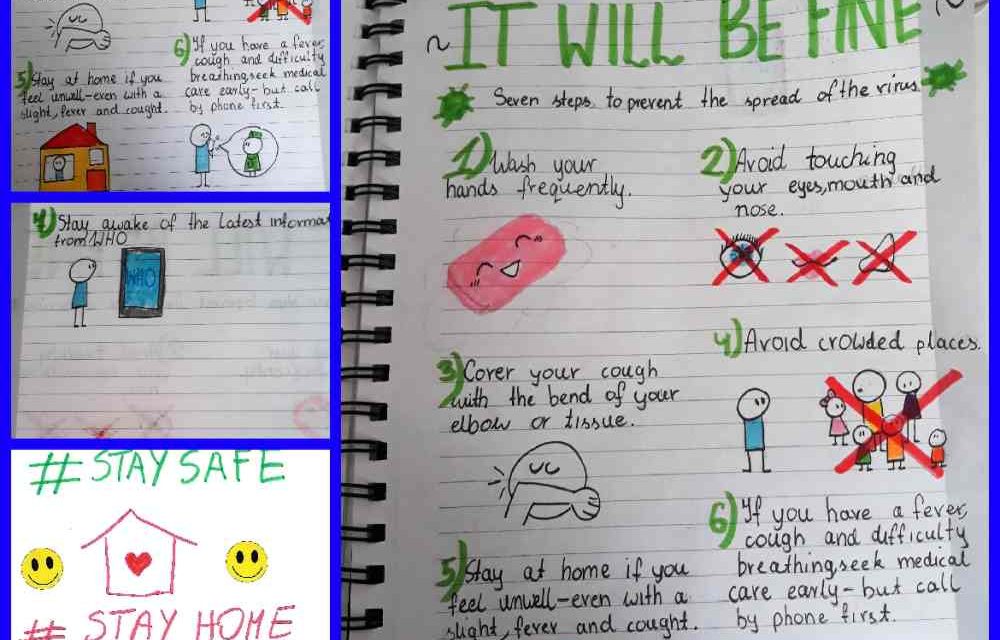 5) Stay at home if you
feel unwell-even with a
slight, fever and cought.
6) If you have a fever,
cough and difficulty
breathing,seek medical
care early-but call
by phone first.
4) Stay awake of the latest informat
from WHO
WHO
# STAY SAFE
# STAY HOME
~ IT WILL BE FINE ~
Seven steps to prevent the spread of the virus.
1) Wash your
hands frequently.
2) Avoid touching
your eyes,mouth and
nose.
3) Cover your cough
with the bend of your
elbow or tissue.
4) Avoid crowded places.
5) Stay at home if you
feel unwell-even with a
slight, fever and cought.
6) If you have a fever,
cough and difficulty
breathing,seek medical
care early-but call
by phone first.